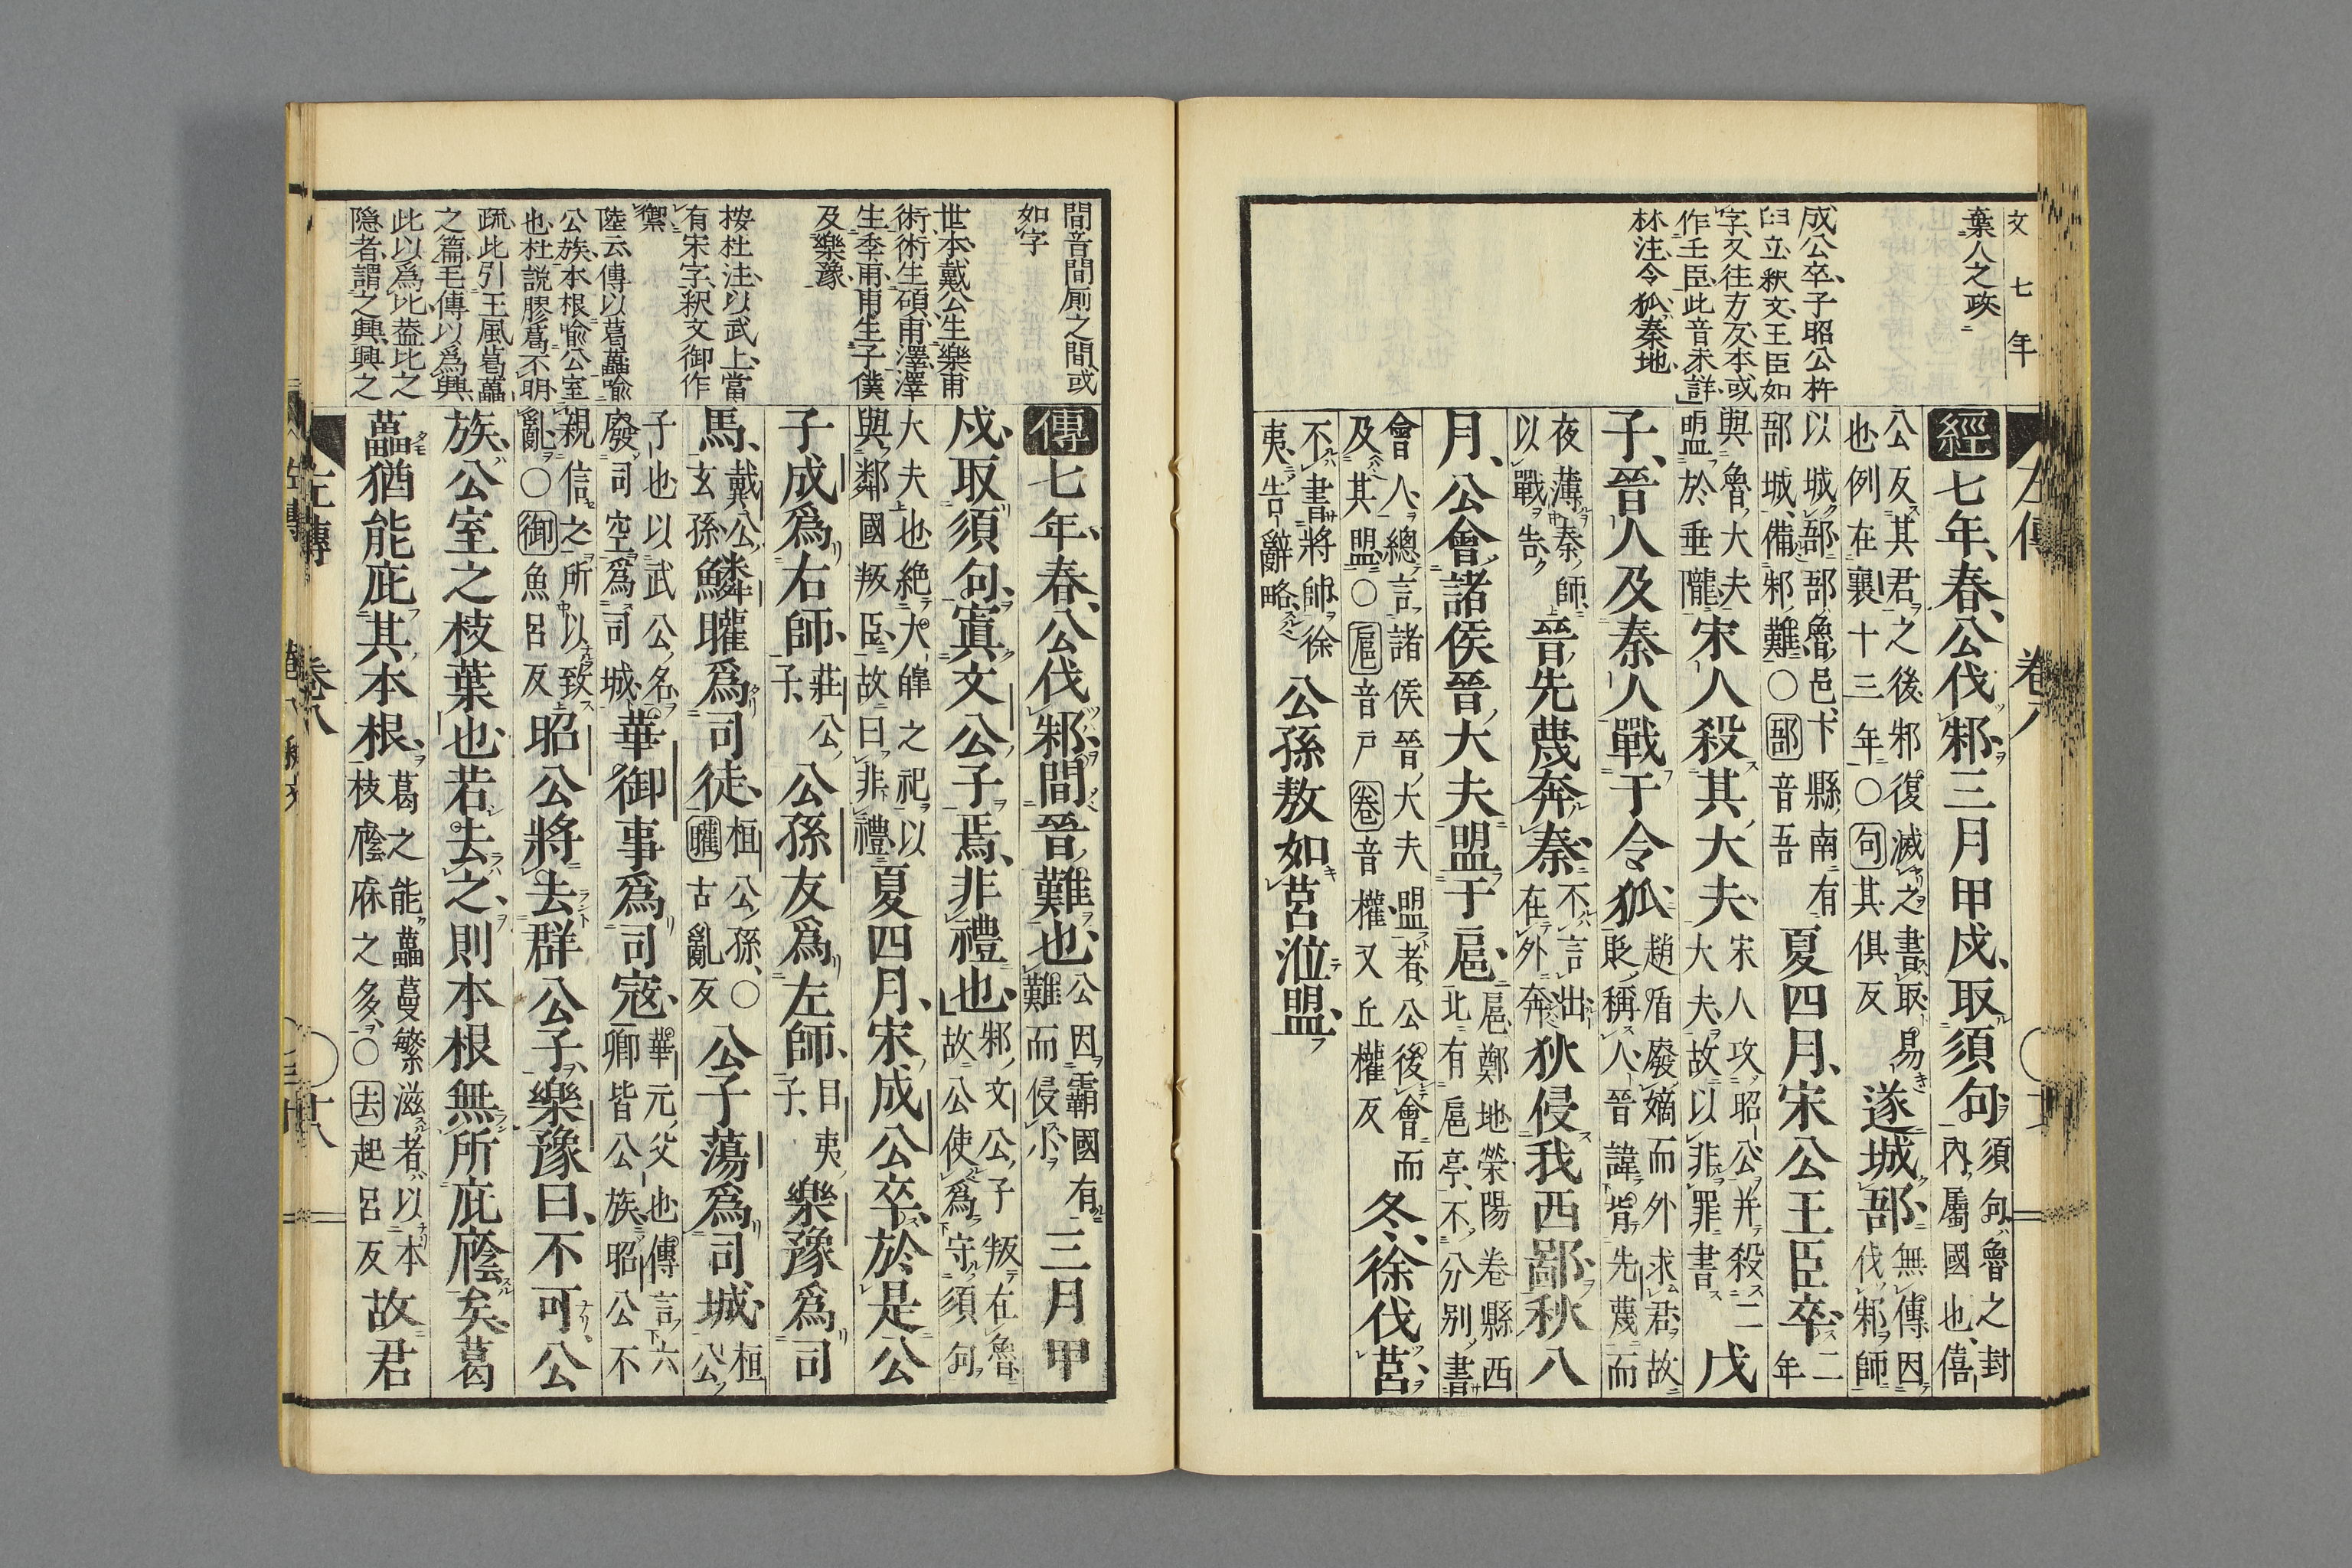 文七年
棄人之政
成公卒子昭公杵
臼立釈文王臣如
字又往方反本或
作壬臣此音未詳
林注令狐秦地
左傳 卷八
經七年春公伐邾三月甲戌取須句須句魯之封内屬國也僖
公反其君之後邾復滅之書取易也例在襄十三年○句其俱反遂城郚無傳因伐邾師
以城郚郚魯邑卞縣南有郚城備邾難○郚音吾夏四月宋公王臣卒二年
與魯大夫盟於垂隴宋人殺其大夫宋人攻昭公并殺二大夫故以非罪書戊
子晉人及秦人戰于令狐趙盾廢嫡而外求君故貶稱人晉諱背先蔑而
夜薄秦師以戰告晉先蔑奔秦不言出在外奔狄侵我西鄙秋八
月公會諸侯晉大夫盟于扈扈鄭地滎陽卷縣西北有扈亭不分別書
會人總言諸侯晉大夫盟者公後會而及其盟○扈音戸卷音權又丘權反冬徐伐莒
不書將帥徐夷告辭略公孫敖如莒涖盟
間音間厠之間或
如字
世本戴公生樂甫
術術生碩甫澤澤
生季甫甫生子僕
及樂豫
按杜注以武上當
有宋字釈文御作
禦
陸云傳以葛藟喩
公族本根喩公室
也杜説膠葛不明
疏此引王風葛藟
之篇毛傳以爲興
此以爲比葢比之
隱者謂之興興之
傳七年春公伐邾間晉難也公因霸國有難而侵小三月甲
戌取須句寘文公子焉非禮也邾文公子叛在魯故公使爲守須句
大夫也絶大皥之祀以與鄰國叛臣故曰非禮夏四月宋成公卒於是公
子成爲右師莊公子公孫友爲左師目夷子樂豫爲司
馬戴公玄孫鱗矔爲司徒桓公孫○矔古亂反公子蕩爲司城桓公
子也以武公名廢司空爲司城華御事爲司寇華元父也傳言六卿皆公族昭公不
親信之所以致亂○御魚呂反昭公將去群公子樂豫曰不可公
族公室之枝葉也若去之則本根無所庇廕矣葛
藟猶能庇其本根葛之能藟蔓繁滋者以本枝廕庥之多○去起呂反故君
左傳 卷八 ○ 十八